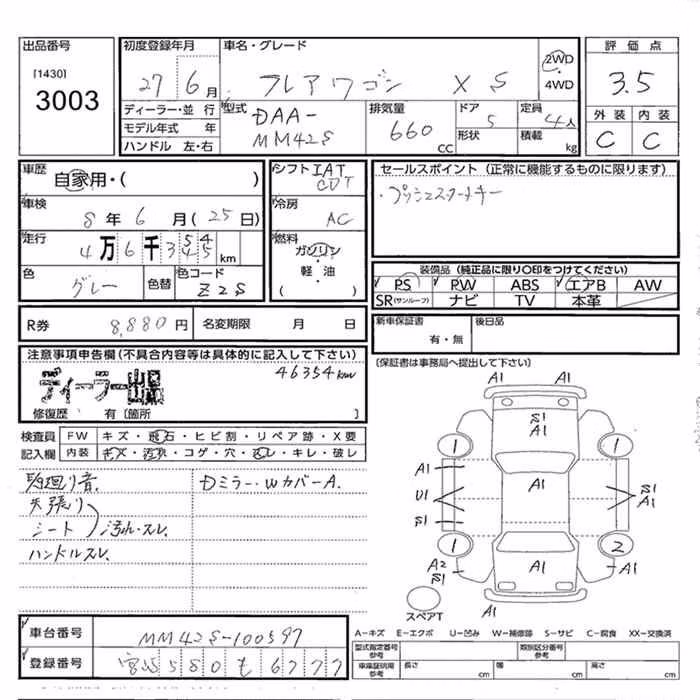 出品番号
[1430]
3003
初度登録年月
27 6月
車名・グレード
フレアワゴン XS
2WD
4WD
評価点
3.5
外装 内装
C C
ディーラー・並行
モデル年式 年
ハンドル 左・右
型式
DAA-
MM42S
排気量
660
CC
ドア
5
形状
定員
4人
積載 kg
車歴
自家用・( )
車検
8年6月(25日)
走行
4万6千354
345 km
色
グレー
色替
色コード
Z2S
シフト IAT
CVT
冷房
AC
燃料
ガソリン
軽・油
( )
セールスポイント (正常に機能するものに限ります)
・プッシュスタートキー
装備品 (純正品に限り○印をつけてください)
PS PW ABS エアB AW
SR(サンルーフ) ナビ TV 本革
R券 8,880円 名変期限 月 日
新車保証書
有・無
後日品
(保証書は事務局へ提出して下さい)
注意事項申告欄(不具合内容等は具体的に記入して下さい)
46354km
ディーラー出品
修復歴・ 有〔箇所 〕
検査員
記入欄
FW キズ・飛石・ヒビ割・リペア跡・X要
内装 キズ・汚れ・コゲ・穴・スレ・キレ・破レ
廻り音.
天張り
シート 汚れ・スレ.
ハンドルスレ.
Dミラー・WカバーA.
A1 A1
S1
A1
1 1
A1
U1
S1
A1
S1
A1
1 2
A2
S1
A1
A1
A1
スペアT
車台番号 MM42S-100597
登録番号 宮城 580 も 6777
A-キズ E-エクボ U-凹み W-補修跡 S-サビ C-腐食 XX-交換済
型式指定番号
参考
類別区分番号
参考
車庫証明用
参考
長さ cm
幅 cm
高さ cm